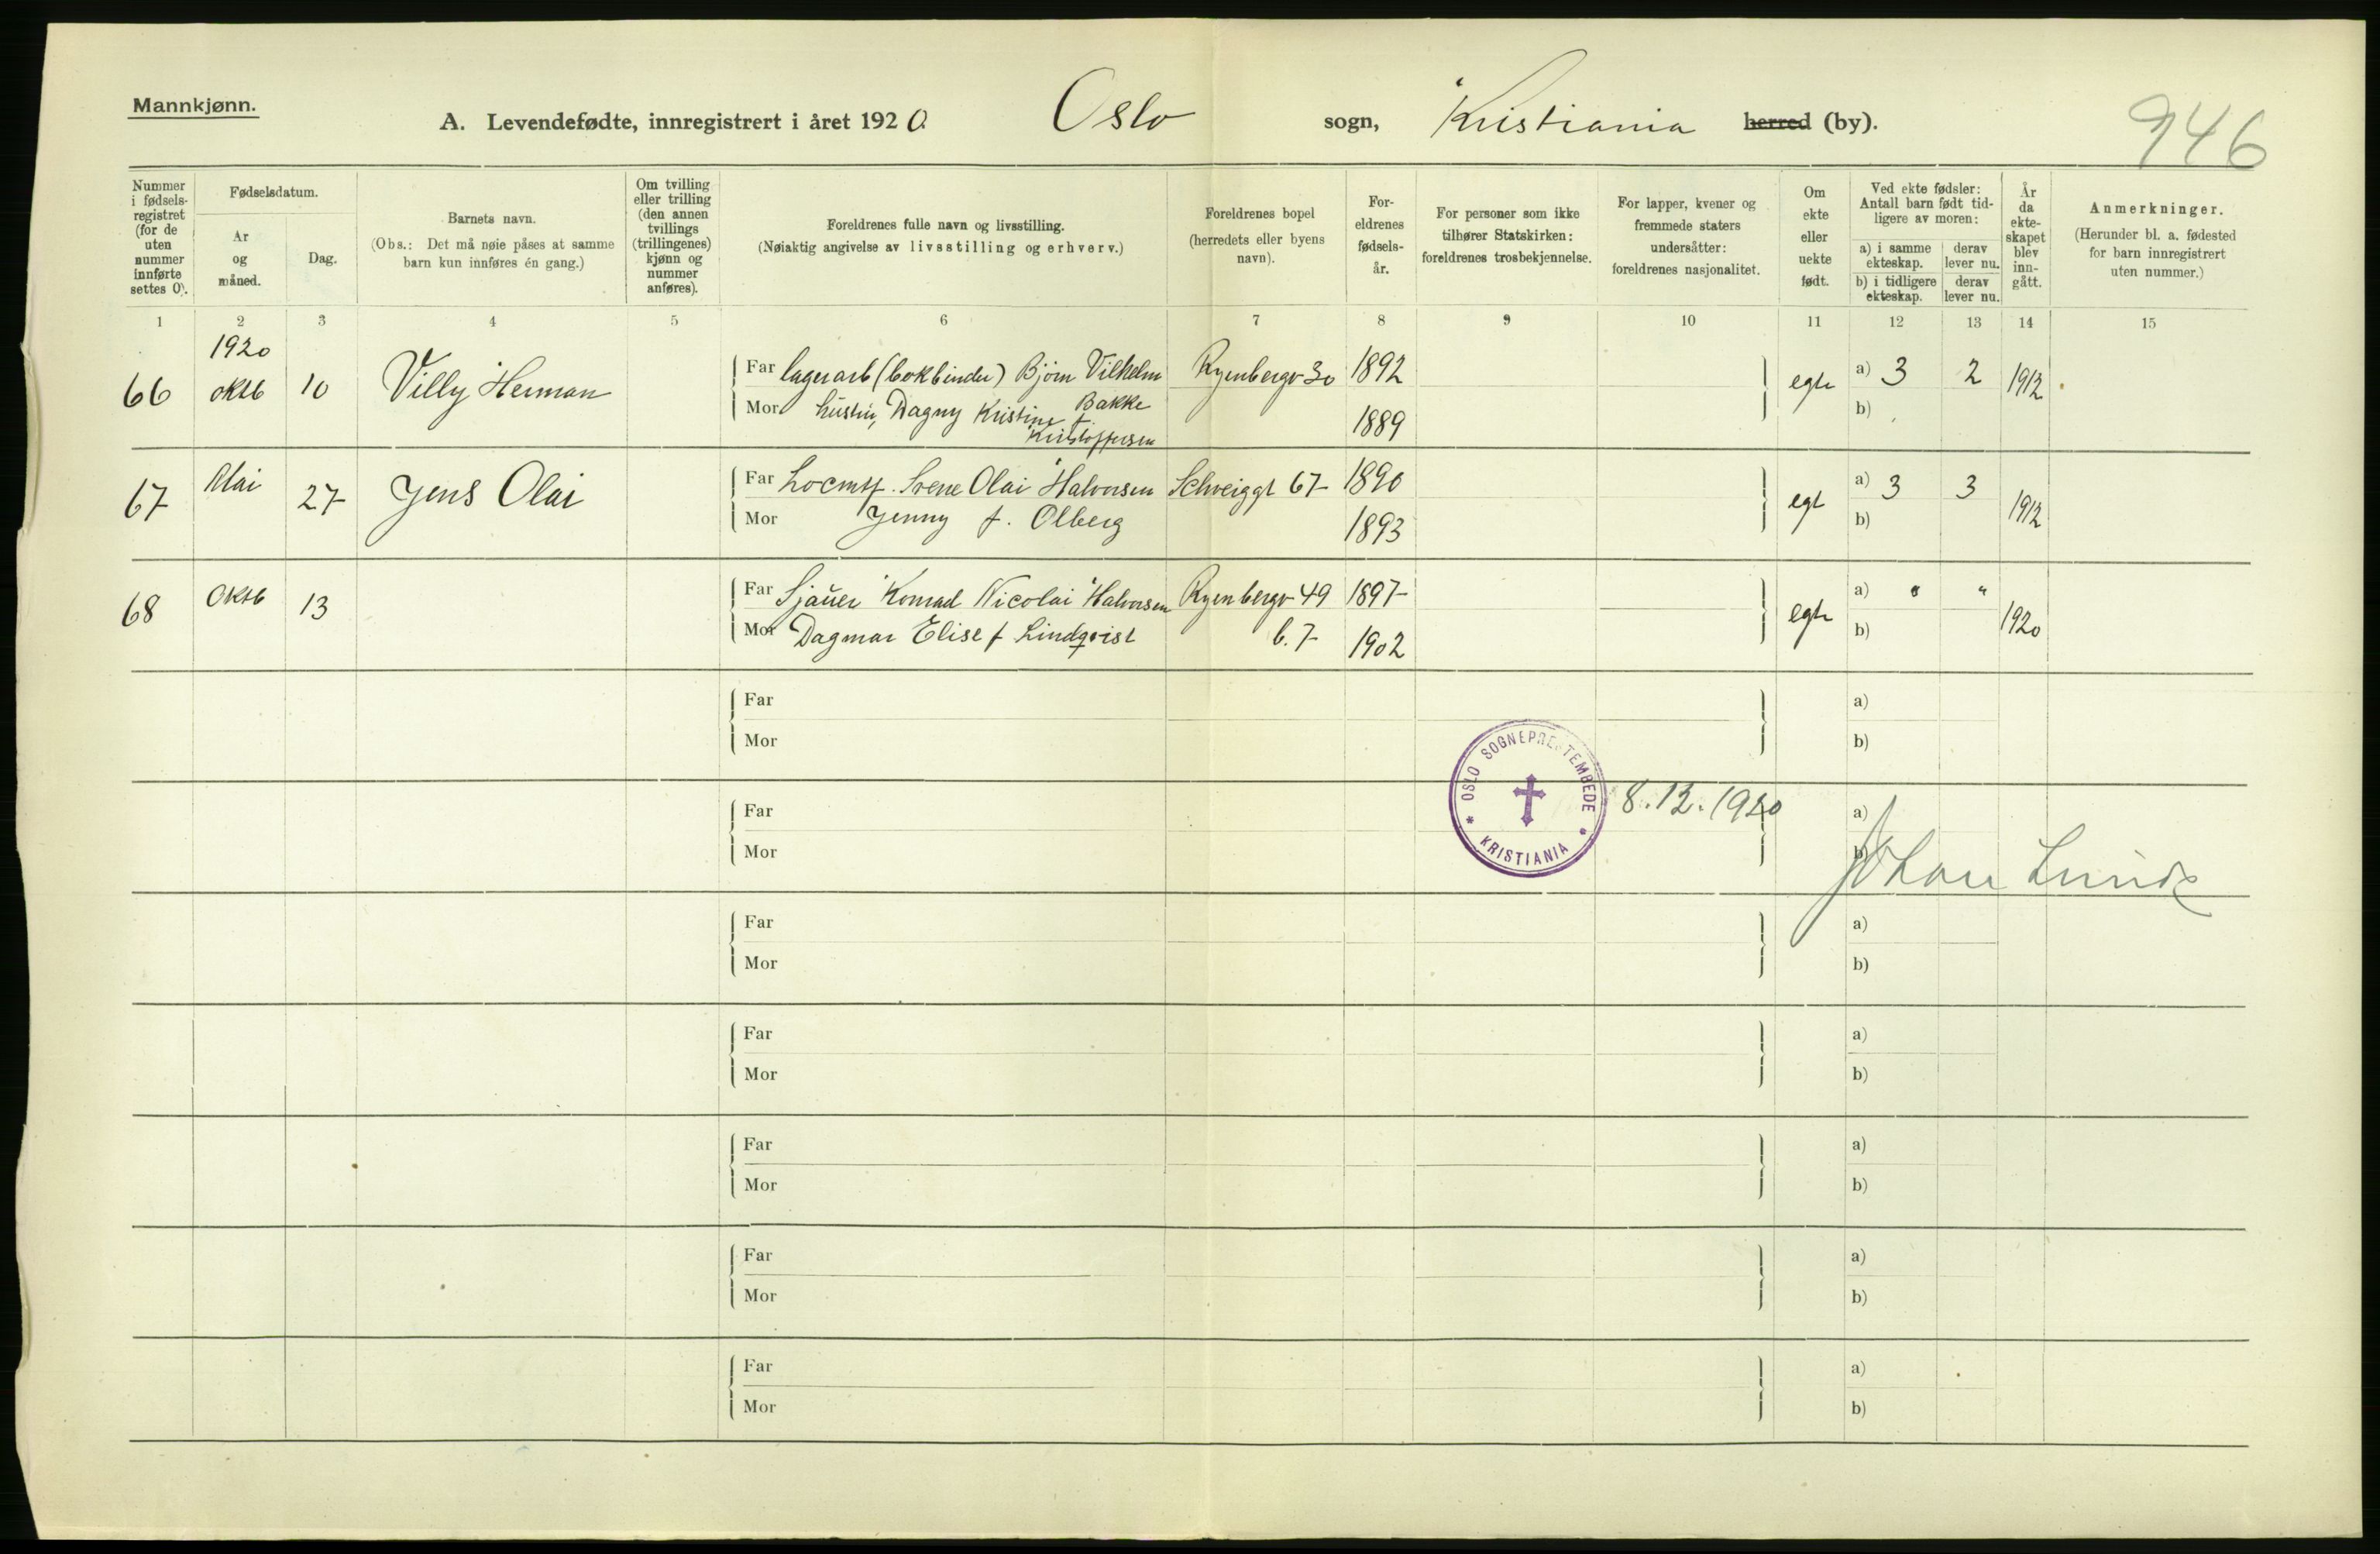 Mannkjønn.
A. Levendefødte, innregistrert i året 1920. Oslo sogn, Kristiania herred (by).
946
Nummer i fødsels-registret (for de uten nummer innførte settes 0).
Fødselsdatum.
År og måned.
Dag.
Barnets navn.
(Obs.: Det må nøie påses at samme barn kun innføres én gang.)
Om tvilling eller trilling (den annen tvillings (trillingenes) kjønn og nummer anføres).
Foreldrenes fulle navn og livsstilling.
(Nøiaktig angivelse av livsstilling og erhverv.)
Foreldrenes bopel (herredets eller byens navn).
For-eldrenes fødsels-år.
For personer som ikke tilhører Statskirken: foreldrenes trosbekjennelse.
For lapper, kvener og fremmede staters undersåtter: foreldrenes nasjonalitet.
Om ekte eller uekte født.
Ved ekte fødsler: Antall barn født tid-ligere av moren:
a) i samme ekteskap.
derav lever nu.
b) i tidligere ekteskap.
derav lever nu.
År da ekte-skapet blev inn-gått.
Anmerkninger.
(Herunder bl. a. fødested for barn innregistrert uten nummer.)
1 2 3 4 5 6 7 8 9 10 11 12 13 14 15
1920
66 oktb 10 Villy Herman Far lagerarb (bokbinder) Bjørn Vilhelm Bakke Ryenbergv 30 1892 egte a) 3 2 1912
Mor hustru, Dagny Kristine f. Kristoffersen 1889 b)
67 Mai 27 Jens Olai Far Halvorsen Schweiggt 67 1890 egt a) 3 3 1912
Mor Jenny f. Olberg 1893 b)
68 Oktb 13 Far Sjauer Konrad Nicolai Halvorsen Ryenbergv 49 1897 egte a) " " 1920
Mor Dagmar Elise f Lindqvist b. 7 1902 b)
Far a)
Mor b)
OSLO SOGNEPRESTEMBEDE * KRISTIANIA *
8.12.1920
Far a)
Mor b)
Johan Lunde
Far a)
Mor b)
Far a)
Mor b)
Far a)
Mor b)
Far a)
Mor b)
Far a)
Mor b)